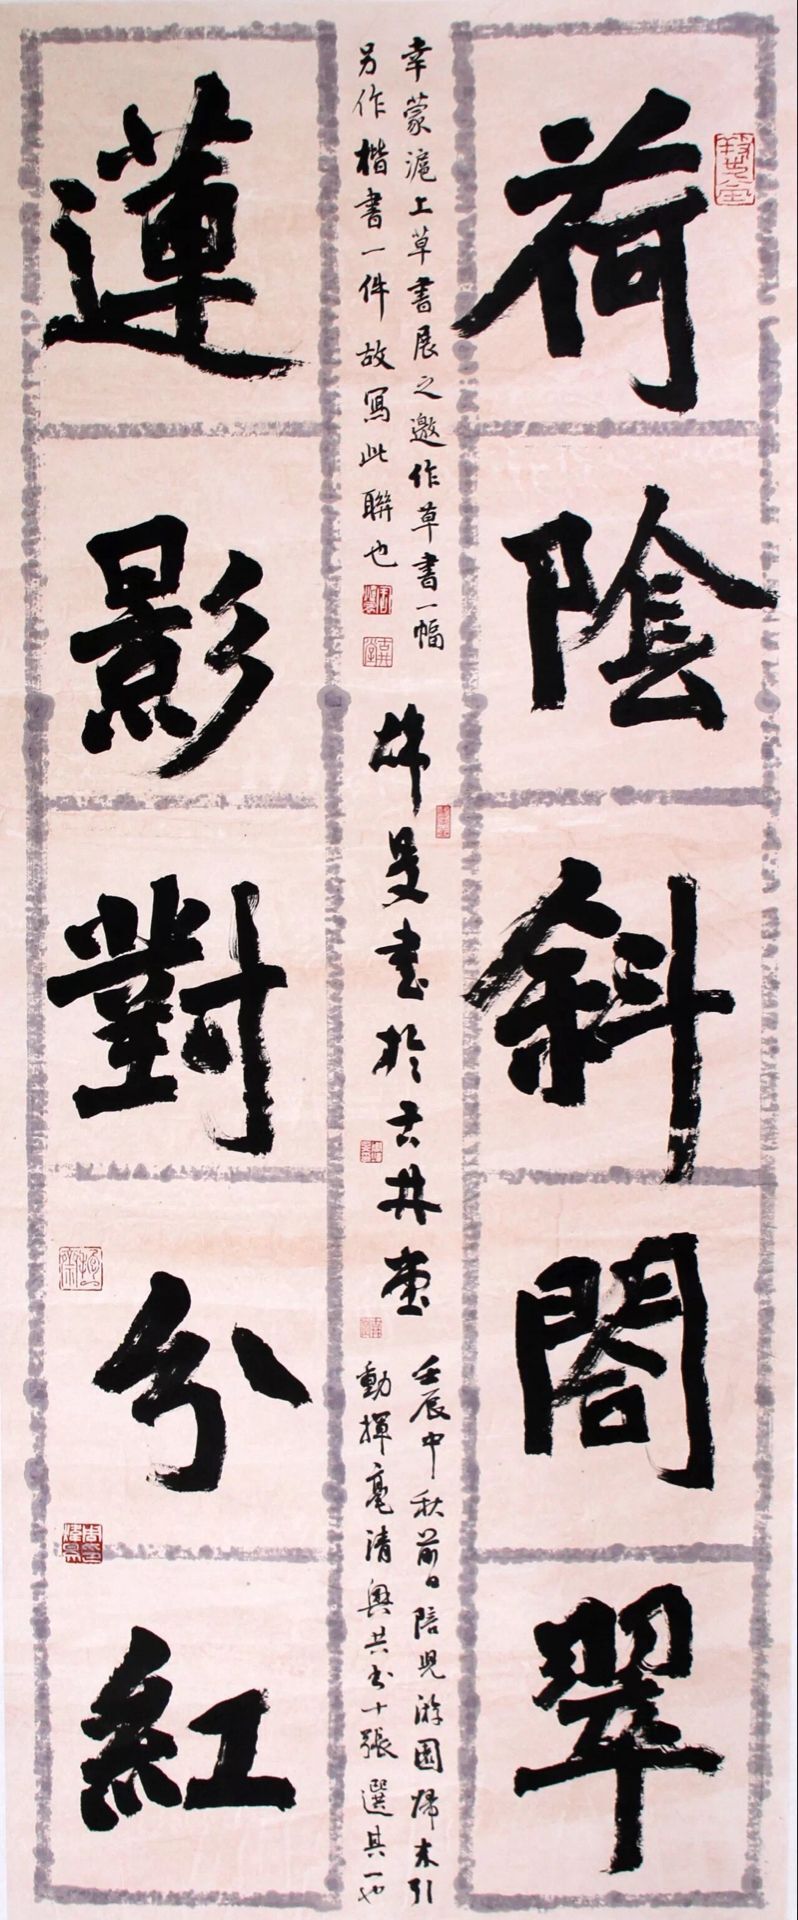 荷陰斜閣翠
蓮影對分紅
幸蒙滬上草書展之邀作草書一幅
另作楷書一件故寫此聯也
書於古井堂
壬辰中秋前日陪兒游園歸來引
動揮毫清興共書十張選其一也